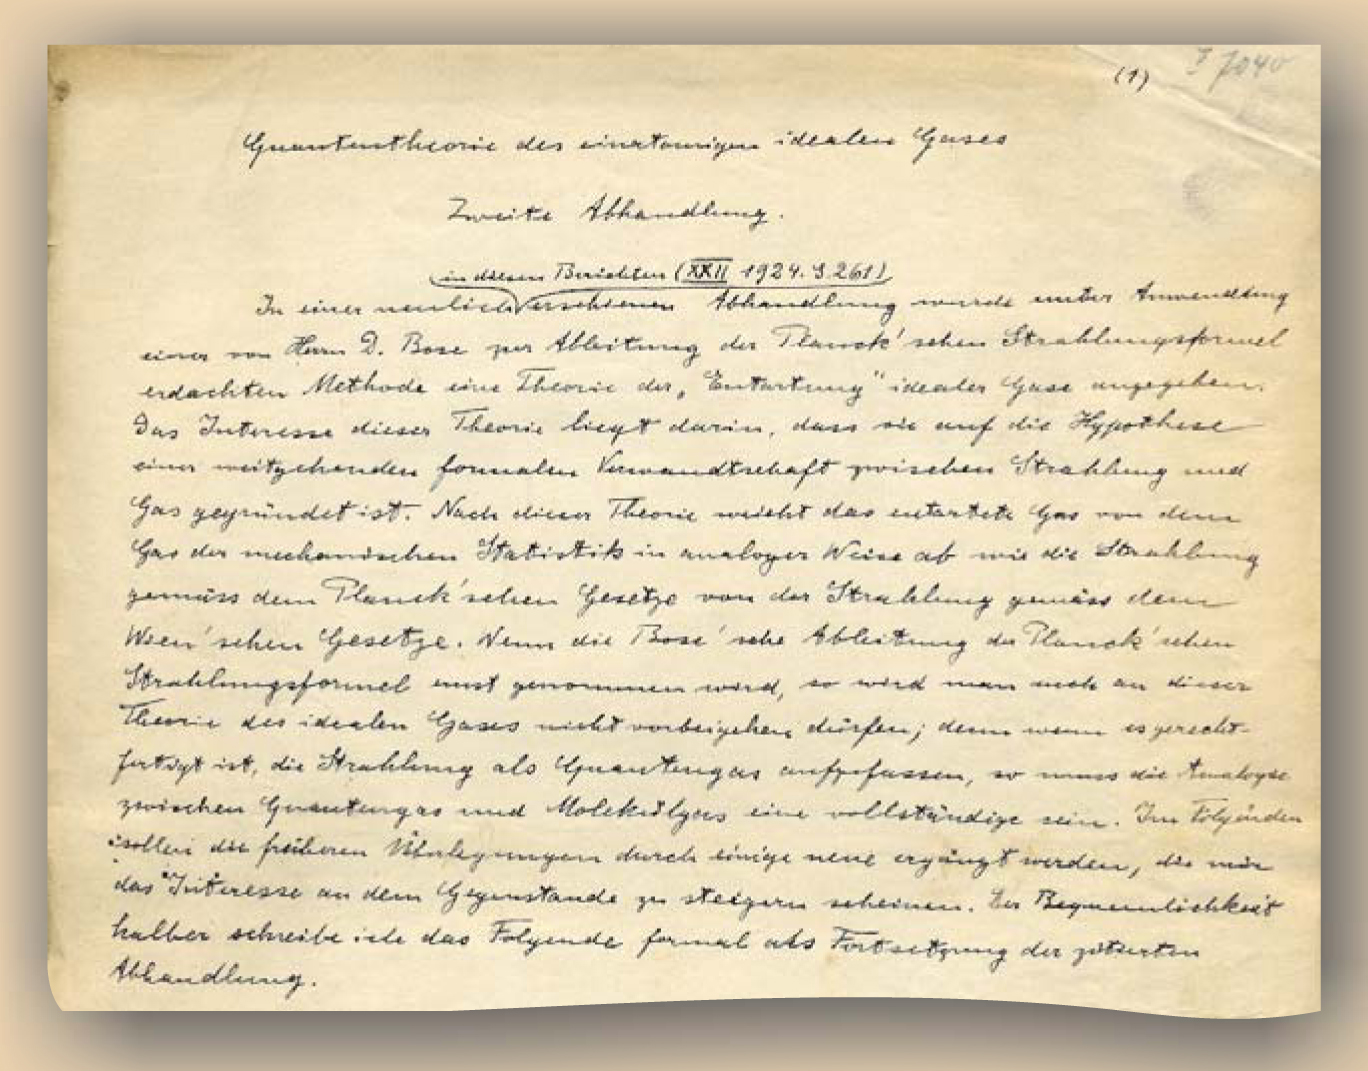 (1)
I 7040
Quantentheorie des einatomigen idealen Gases
Zweite Abhandlung.
in diesen Berichten (XXII 1924. S. 261)
In einer neulich erschienenen Abhandlung wurde unter Anwendung
einer von Herrn D. Bose zur Ableitung der Planck'schen Strahlungsformel
erdachten Methode eine Theorie der „Entartung" idealer Gase angegeben.
Das Interesse dieser Theorie liegt darin, dass sie auf die Hypothese
einer weitgehenden formalen Verwandtschaft zwischen Strahlung und
Gas gegründet ist. Nach dieser Theorie weicht das entartete Gas von dem
Gas der mechanischen Statistik in analoger Weise ab wie die Strahlung
gemäss dem Planck'schen Gesetze von der Strahlung gemäss dem
Wien'schen Gesetze. Wenn die Bose'sche Ableitung der Planck'schen
Strahlungsformel ernst genommen wird, so wird man auch an dieser
Theorie des idealen Gases nicht vorbeigehen dürfen; denn wenn es gerecht-
fertigt ist, die Strahlung als Quantengas aufzufassen, so muss die Analogie
zwischen Quantengas und Molekülgas eine vollständige sein. Im Folgenden
sollen die früheren Überlegungen durch einige neue ergänzt werden, die mir
das Interesse an dem Gegenstande zu steigern scheinen. Der Bequemlichkeit
halber schreibe ich das Folgende formal als Fortsetzung der zitierten
Abhandlung.